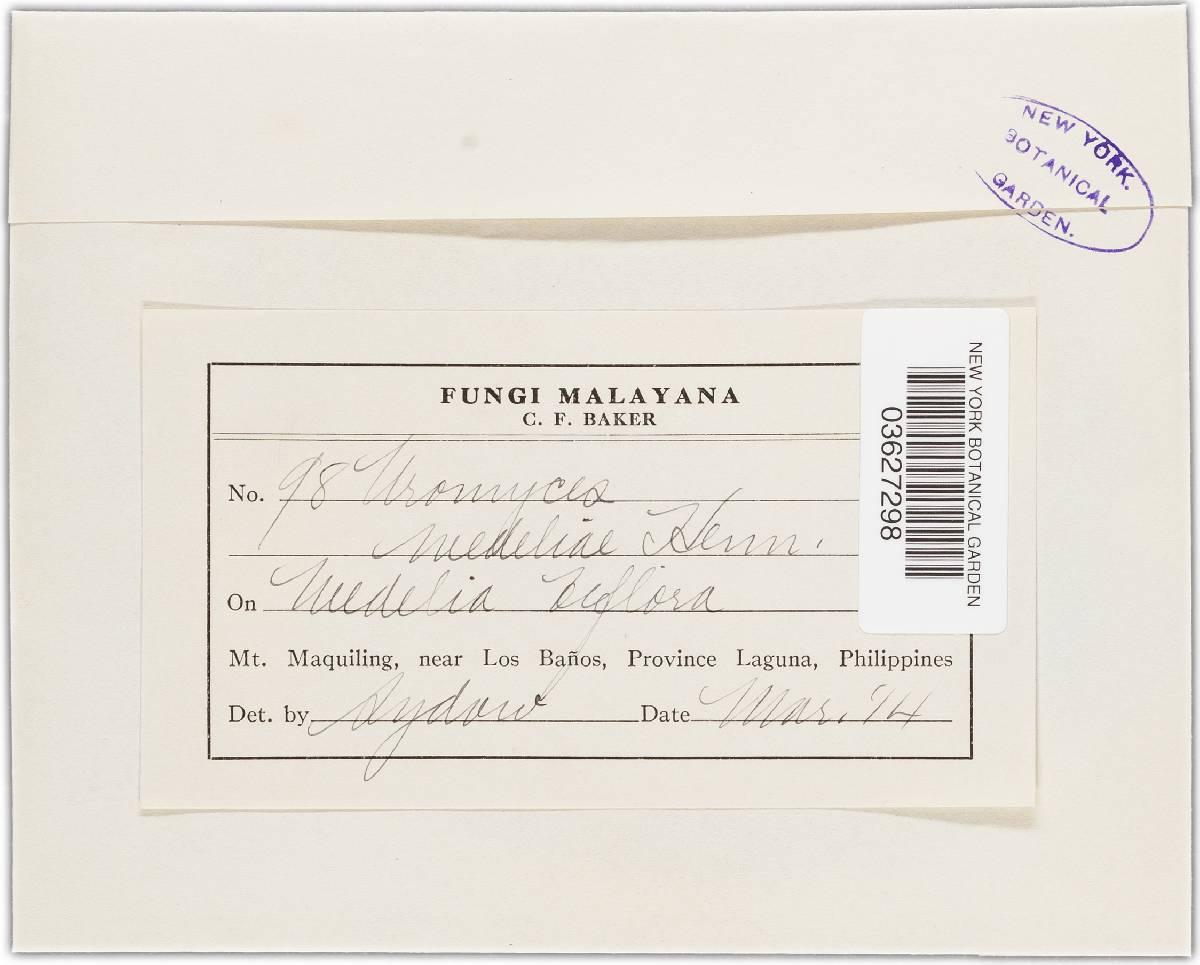 NEW YORK.
BOTANICAL
GARDEN.
FUNGI MALAYANA
C. F. BAKER
No. 98 Uromyces
Wedeliae Henn.
On Wedelia biflora
Mt. Maquiling, near Los Baños, Province Laguna, Philippines
Det. by Sydow Date Mar. '14
NEW YORK BOTANICAL GARDEN
03627298